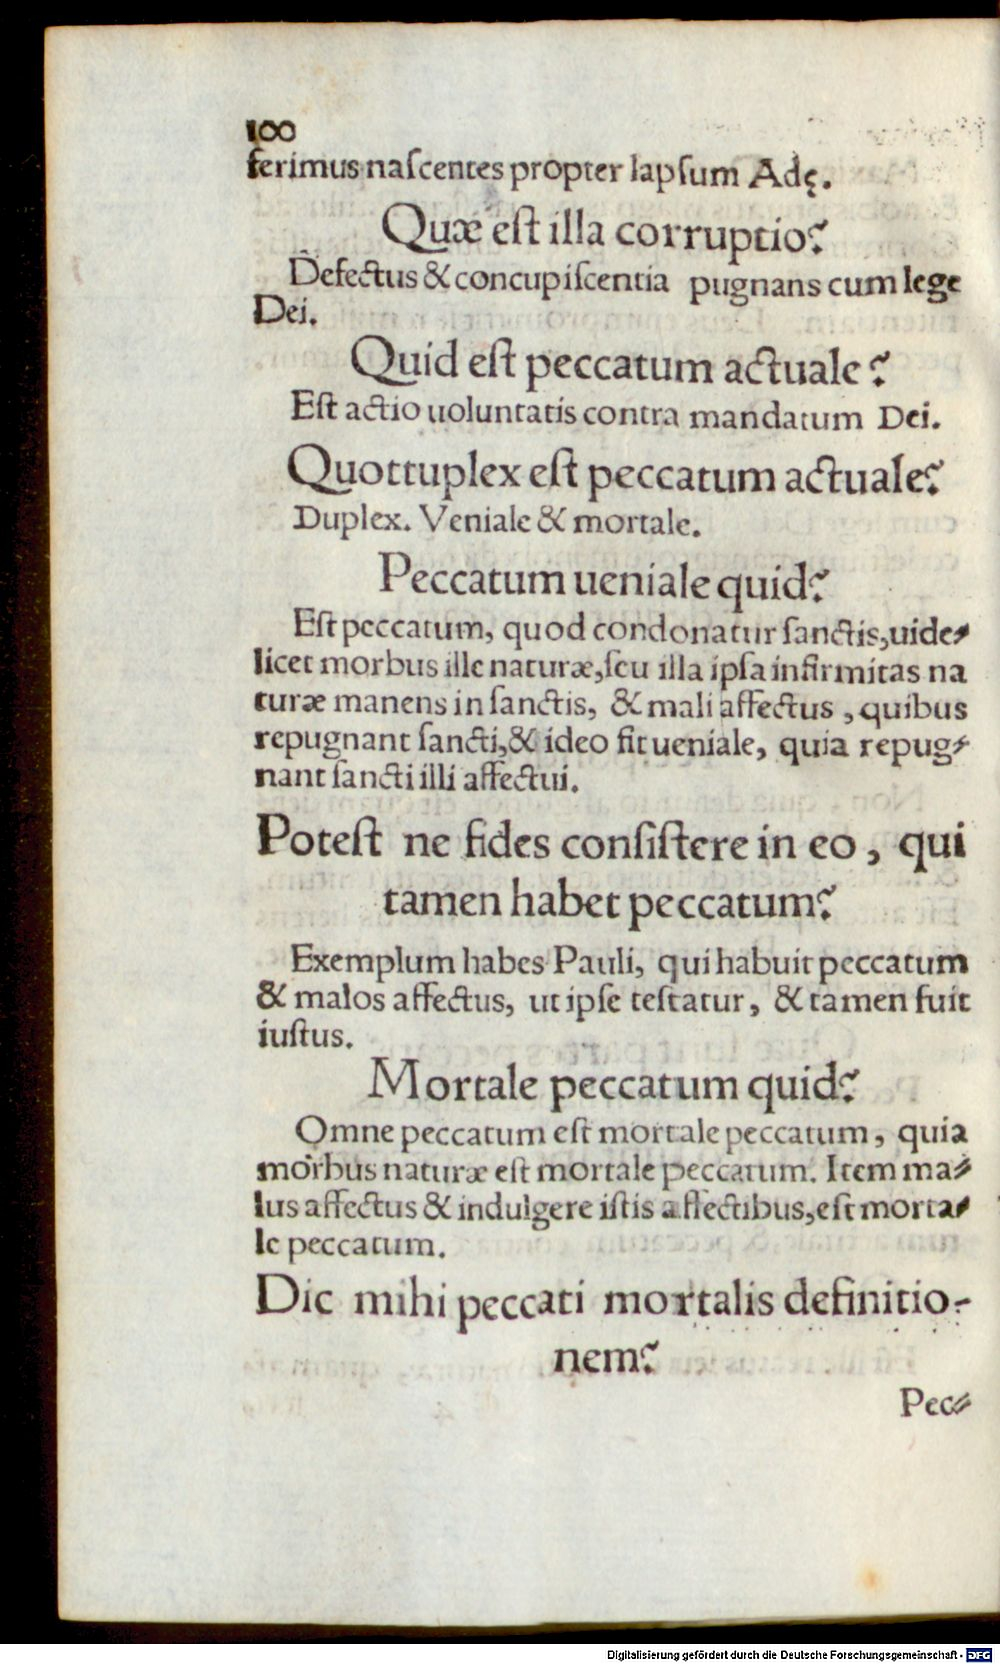 100
ferimus naſcentes propter lapſum Adę.
Quæ eſt illa corruptio?
Defectus & concupiſcentia pugnans cum lege
Dei.
Quid eſt peccatum actuale?
Eſt actio uoluntatis contra mandatum Dei.
Quottuplex eſt peccatum actuale?
Duplex. Veniale & mortale.
Peccatum ueniale quid?
Eſt peccatum, quod condonatur ſanctis, uide⸗
licet morbus ille naturæ, ſeu illa ipſa infirmitas na
turæ manens in ſanctis, & mali affectus, quibus
repugnant ſancti, & ideo fit ueniale, quia repug⸗
nant ſancti illi affectui.
Poteſt ne fides conſiſtere in eo, qui
tamen habet peccatum?
Exemplum habes Pauli, qui habuit peccatum
& malos affectus, ut ipſe teſtatur, & tamen fuit
iuſtus.
Mortale peccatum quid?
Omne peccatum eſt mortale peccatum, quia
morbus naturæ eſt mortale peccatum. Item ma⸗
lus affectus & indulgere iſtis affectibus, eſt morta⸗
le peccatum.
Dic mihi peccati mortalis definitio-
nem?
Pec⸗
Digitalisierung gefördert durch die Deutsche Forschungsgemeinschaft - DFG